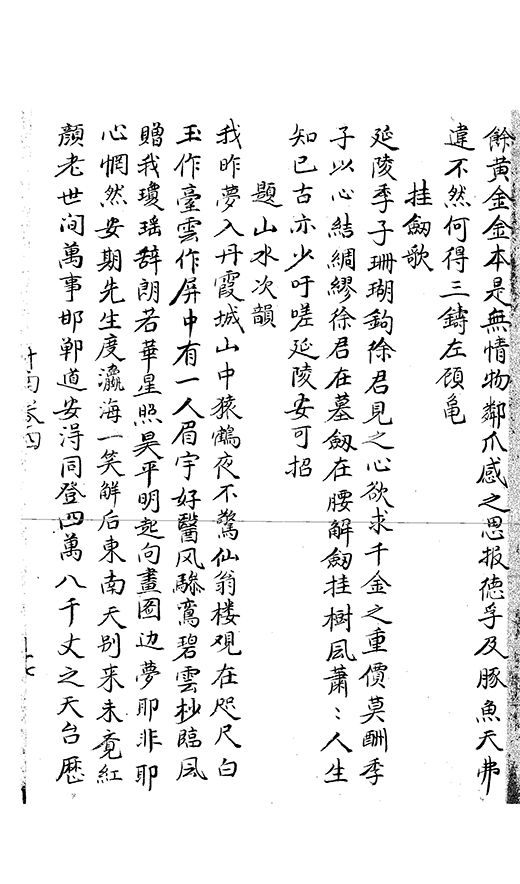 餘黄金金本是無情物鄰爪感之思报徳孚及豚魚天弗
違不然何得三鑄左顾亀
挂劔歌
延陵季子珊瑚鉤徐君見之心欲求千金之重價莫酬季
子以心結綢繆徐君在墓劔在腰解劔挂樹風蕭〻人生
知已古亦少吁嗟延陵安可招
題山水次韻
我昨夢入丹霞城山中猿鶴夜不驚仙翁楼观在咫尺白
玉作臺雲作屏中有一人眉宇好醫风驂鸞碧雲杪臨风
贈我瓊瑶辞朗若華星照昊平明起向畫圖边夢耶非耶
心惘然安期先生度瀛海一笑觧后東南天别来未竟紅
顔老世间萬事邯鄲道安淂同登四萬八千丈之天台歷
卷四
十七